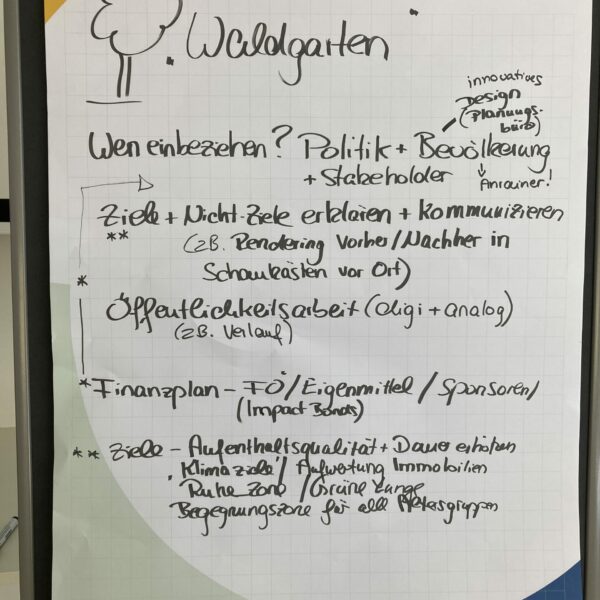 Waldgarten
innovatives
Design
(Planungs-
büro)
Wen einbeziehen? Politik + Bevölkerung
+ Stakeholder
Anrainer!
Ziele + Nicht-Ziele erklären + kommunizieren
**
(zB. Rendering Vorher/Nachher in
Schaukästen vor Ort)
*
Öffentlichkeitsarbeit (digi + analog)
(zB. Verlauf)
* Finanzplan - FÖ/Eigenmittel / Sponsoren/
(Impact Bonds)
** Ziele - Aufenthaltsqualität + Dauer erhöhen
"Klimaziele"/ Aufwertung Immobilien
Ruhe Zone / Grüne Lunge
Begegnungszone für alle Altersgruppen